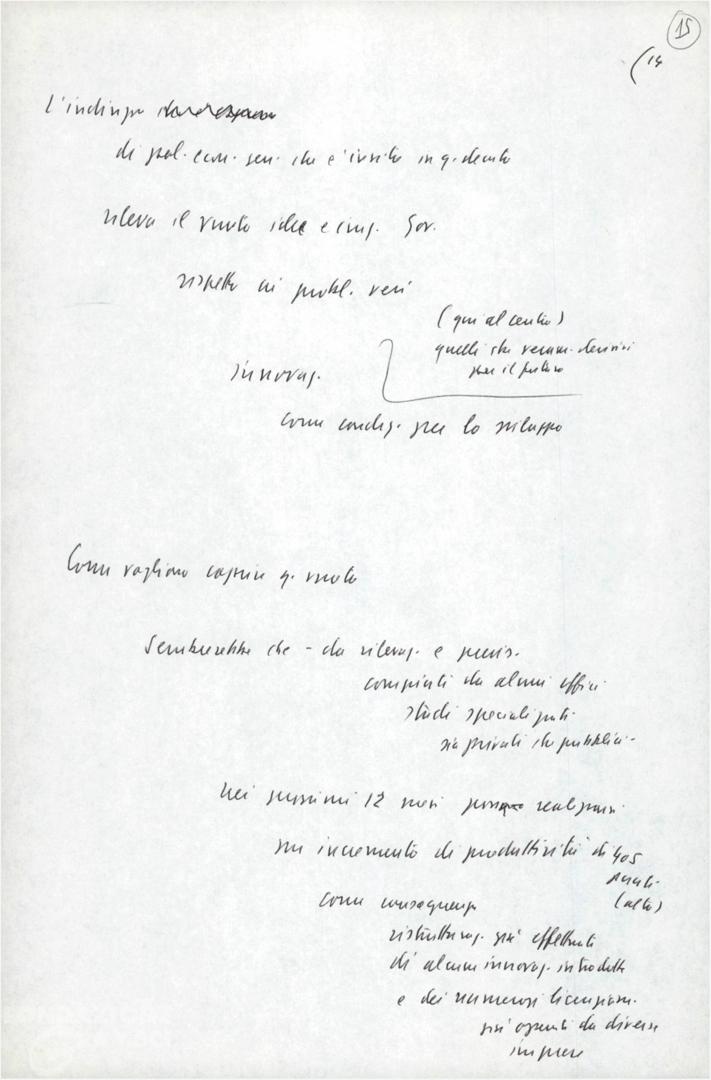 15
(14
L'indirizzo
di pol. econ. gen. che è insito in q. decreto
rileva il vuoto idee e cing. Gov.
rispetto ai probl. veri
(qui al centro)
quelli che veram. decisivi
per il futuro
innovaz.
come condiz. per lo sviluppo
Come vogliono coprire q. vuoto
Sembrerebbe che - da rilevaz. e previs.
compiuti da alcuni uffici
studi specializzati
sia privati che pubblici -
nei prossimi 12 mesi possa realizzarsi
un incremento di produttività di 4 o 5
punti
(alto)
come conseguenza
ristrutturaz. già effettuati
di alcune innovaz. introdotte
e dei numerosi licenziam.
già operati da diverse
imprese